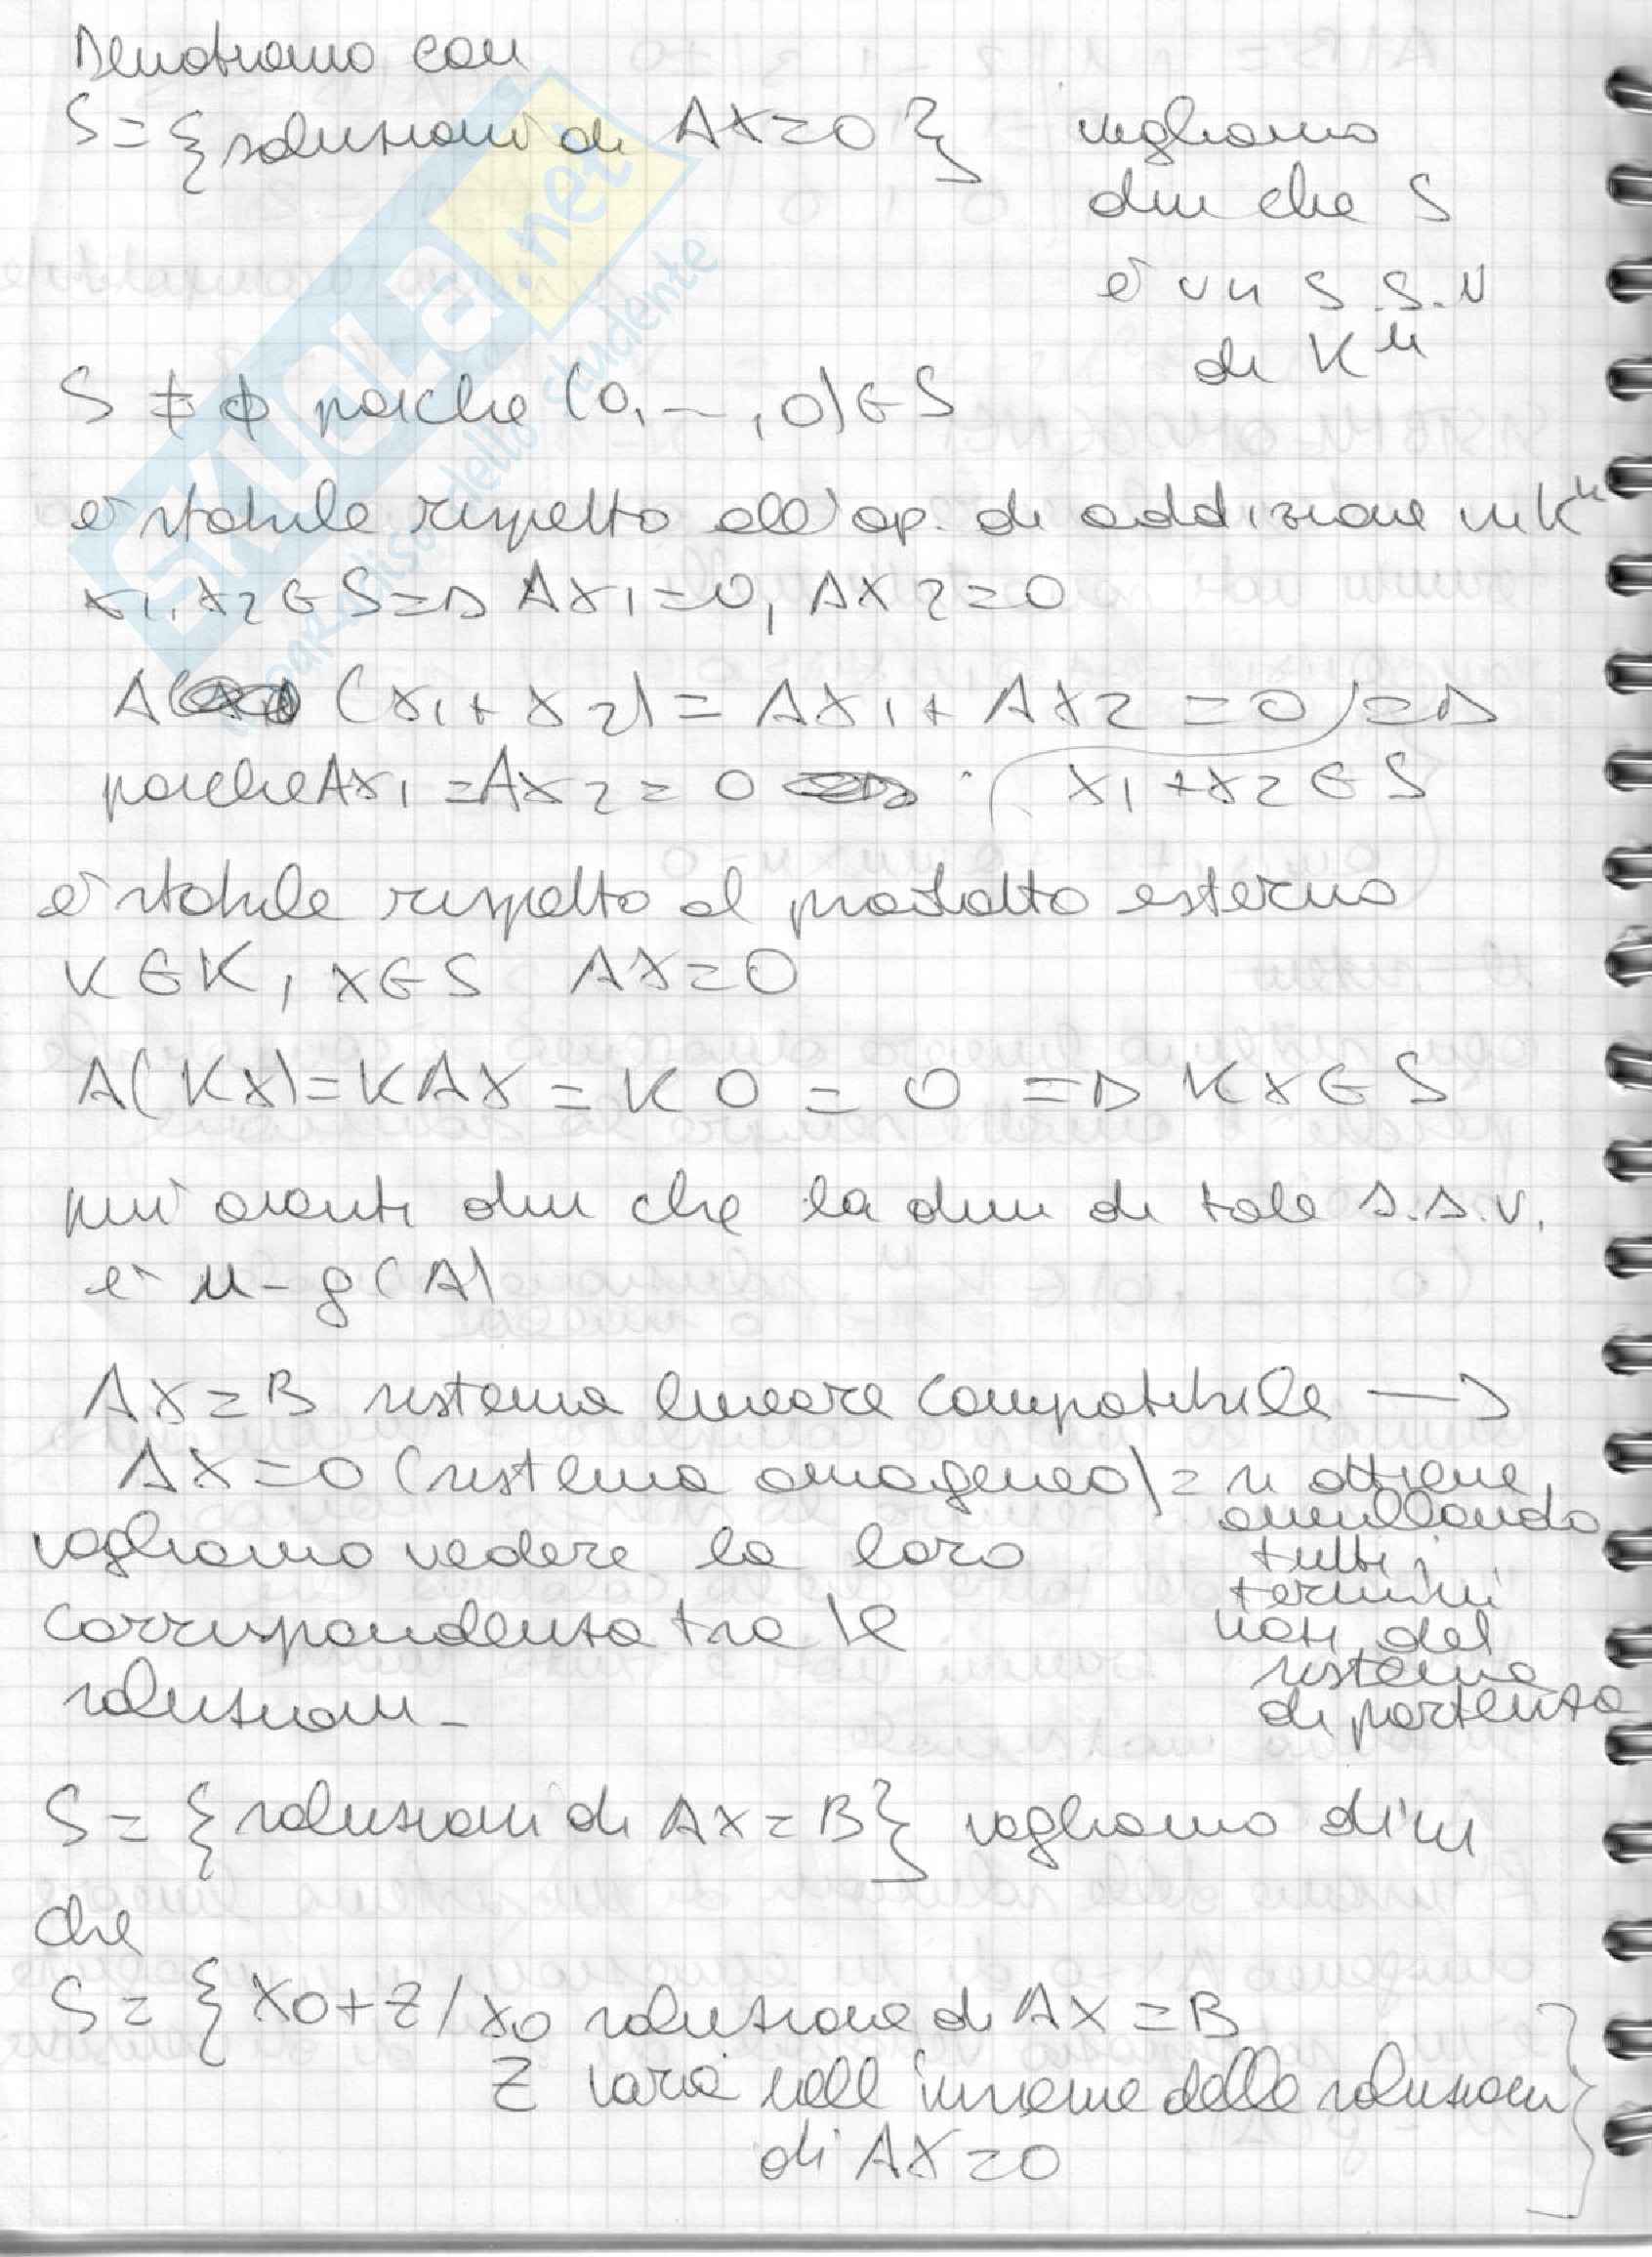 Denotiamo con
S = {soluzioni di AX=0} vogliamo
dim che S
è un S.S.V
di Kⁿ
S ≠ ϕ poiché (0,–,0)∈S
è stabile rispetto all'op. di addizione in Kⁿ
x1, x2 ∈ S => Ax1=0, Ax2=0
A (x1+x2) = Ax1+Ax2 = 0 =>
poiche Ax1=Ax2=0 x1+x2 ∈ S
è stabile rispetto al prodotto esterno
K∈K, x∈S AX=0
A(KX)=KAX=K0=0 => KX∈S
piu' avanti dim che la dim di tale s.s.v.
è n-ρ(A)
AX=B sistema lineare compatibile →
AX=0 (sistema omogeneo) = si ottiene
annullando
tutti i
termini
noti del
sistema
di partenza
vogliamo vedere la loro
corrispondenza tra le
soluzioni_
S = {soluzioni di AX=B} vogliamo dim
che
S = {X0+Z/X0 soluzione di AX=B
Z varia nell'insieme delle soluzioni
di AX=0}
SKUOLA.net
il paradiso dello studente